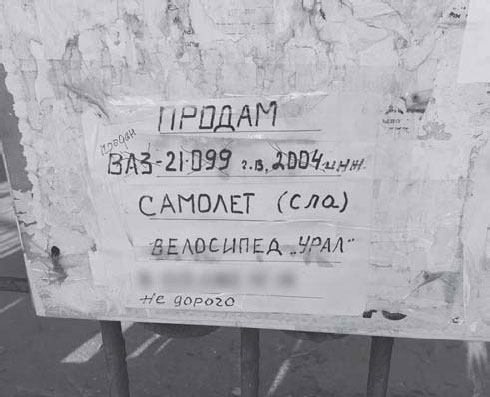 ПРОДАМ
продан
ВАЗ-21.099 г.в. 2004 инж.
САМОЛЕТ (сла)
ВЕЛОСИПЕД „УРАЛ"
не дорого